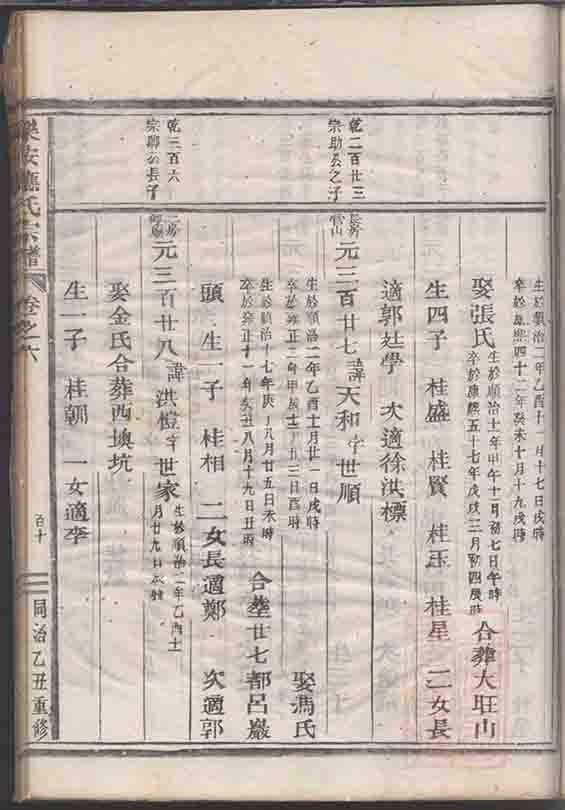 生於順治二年乙酉十一月十七日戌時
卒於康熙四十二年癸未十月十九戌時
娶張氏
生於順治十一年甲午十二月初七日午時
卒於康熙五十七年戊戌三月初四辰時
合葬大旺山
生四子 桂盛 桂賢 桂玉 桂星 二女長
適郭 學 次適徐洪標
乾二百廿三
宗助公之子
長房
管山
元三百廿七諱天和字世順
生於順治二年乙酉十月廿一日戌時
卒於雍正二年甲辰十 月 三日酉時
娶馮氏
生於順治十七年庚子八月廿五日未時
卒於雍正十一年 丑八月十九日丑時
合塋廿七都呂巖
頭 生一子 桂相 二女長適鄭 次適郭
乾三百六
宗聯公長子
二房
元三百廿八諱洪愷字世家
生於順治二年乙酉十
月廿九日 時
娶金氏合葬西墺坑
生一子 桂朝 一女適李
樂安 氏宗譜 卷之六 百十 同治乙丑重修